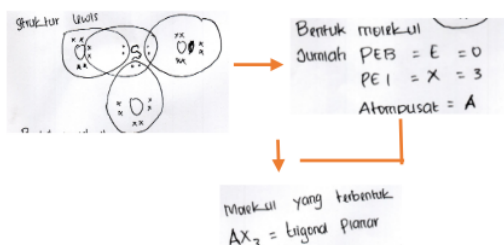 struktur Lewis
O S O
O
Bentuk molekul
Jumlah PEB = E = 0
PEI = X = 3
Atom pusat = A
Molekul yang terbentuk
AX₃ = trigonal planar